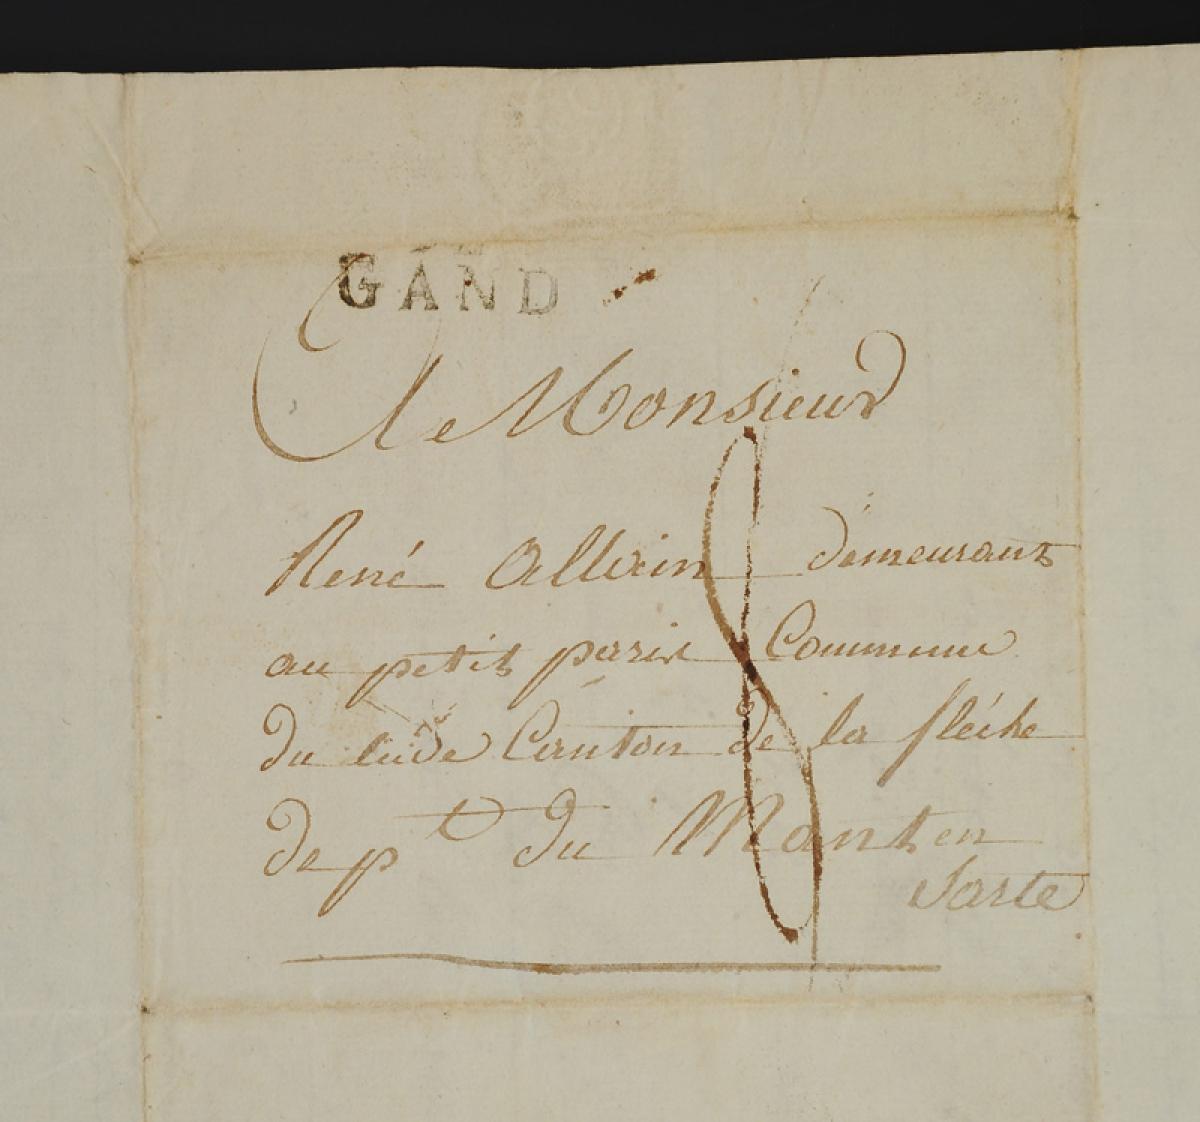 GAND
A Monsieur
René Allvin demeurant
au petit paris Commune
du lude Canton de la fléche
dept du Mans en
Sarte
8